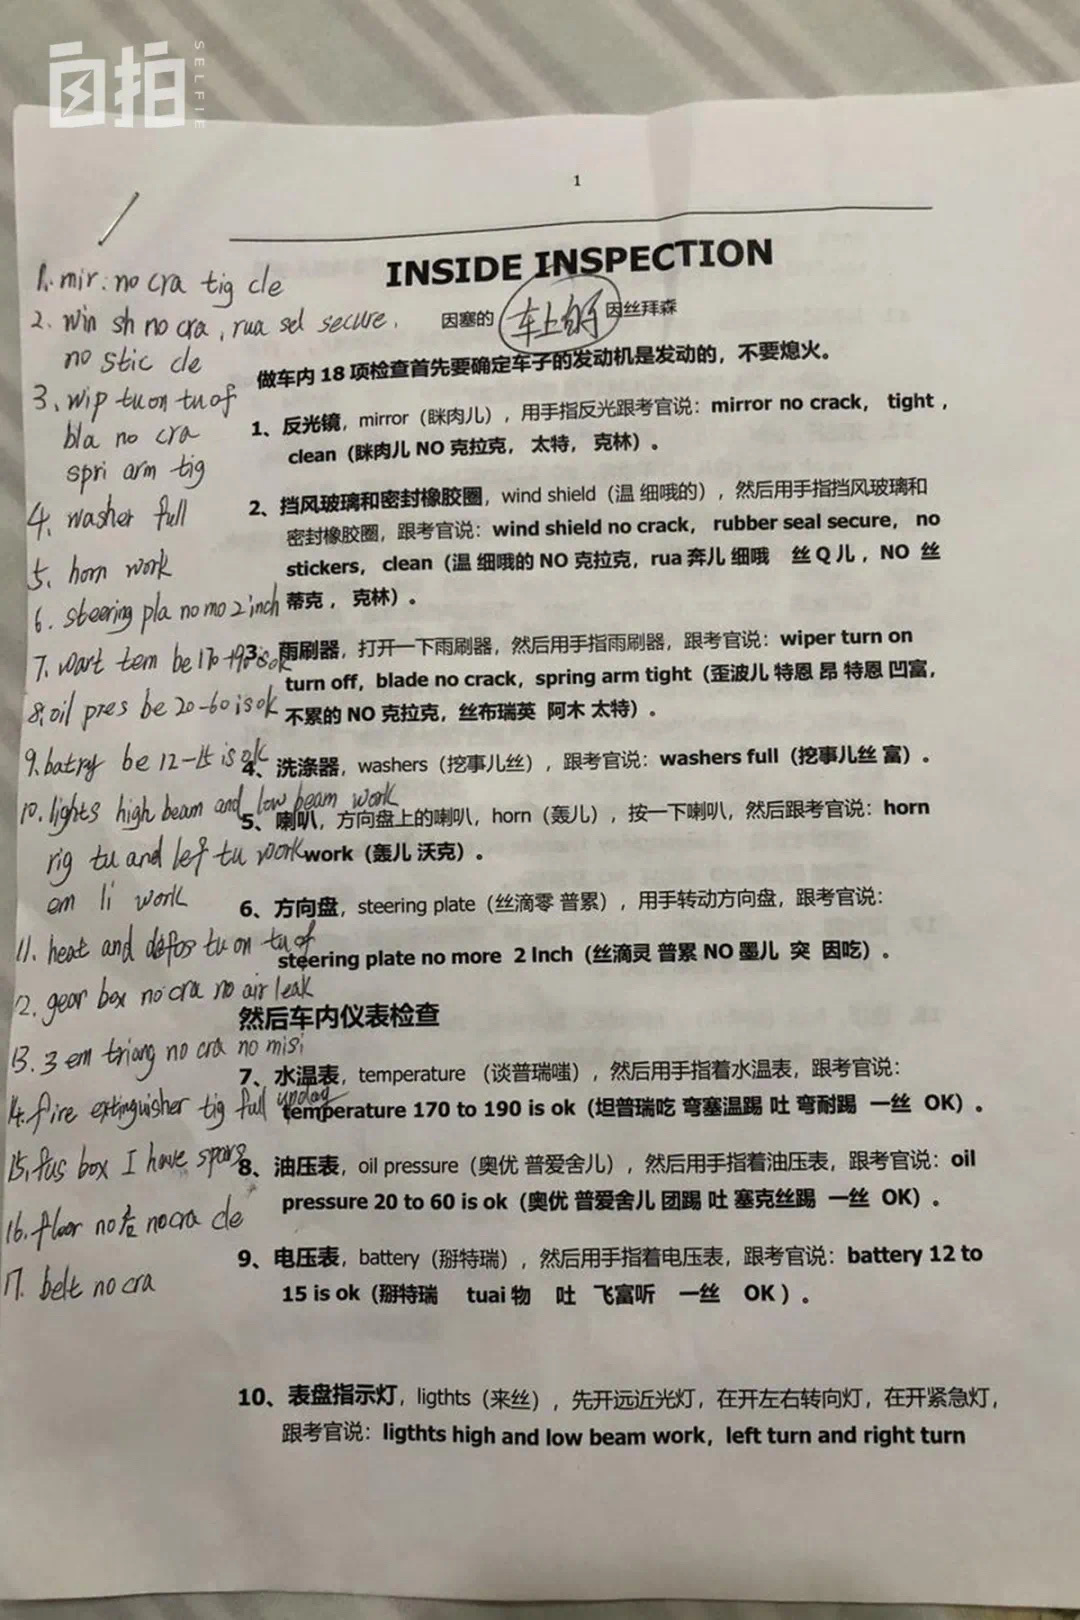 自拍
SELFIE
1
INSIDE INSPECTION
因塞的 车上的 因丝拜森
做车内 18 项检查首先要确定车子的发动机是发动的，不要熄火。
1、反光镜，mirror（眯肉儿），用手指反光跟考官说：mirror no crack， tight，
clean（眯肉儿 NO 克拉克， 太特， 克林）。
2、挡风玻璃和密封橡胶圈，wind shield（温 细哦的），然后用手指挡风玻璃和
密封橡胶圈，跟考官说：wind shield no crack， rubber seal secure， no
stickers， clean（温 细哦的 NO 克拉克，rua 奔儿 细哦 丝 Q 儿，NO 丝
蒂克， 克林）。
3、雨刷器，打开一下雨刷器，然后用手指雨刷器，跟考官说：wiper turn on
turn off，blade no crack，spring arm tight（歪波儿 特恩 昂 特恩 凹富，
不累的 NO 克拉克，丝布瑞英 阿木 太特）。
4、洗涤器，washers（挖事儿丝），跟考官说：washers full（挖事儿丝 富）。
5、喇叭，方向盘上的喇叭，horn（轰儿），按一下喇叭，然后跟考官说：horn
work（轰儿 沃克）。
6、方向盘，steering plate（丝滴零 普累），用手转动方向盘，跟考官说：
steering plate no more 2 Inch（丝滴灵 普累 NO 墨儿 突 因吃）。
然后车内仪表检查
7、水温表，temperature （谈普瑞嗤），然后用手指着水温表，跟考官说：
temperature 170 to 190 is ok（坦普瑞吃 弯塞温踢 吐 弯耐踢 一丝 OK）。
8、油压表，oil pressure（奥优 普爱舍儿），然后用手指着油压表，跟考官说：oil
pressure 20 to 60 is ok（奥优 普爱舍儿 团踢 吐 塞克丝踢 一丝 OK）。
9、电压表，battery（掰特瑞），然后用手指着电压表，跟考官说：battery 12 to
15 is ok（掰特瑞 tuai 物 吐 飞富听 一丝 OK ）。
10、表盘指示灯，ligthts（来丝），先开远近光灯，在开左右转向灯，在开紧急灯，
跟考官说：ligthts high and low beam work，left turn and right turn
1. mir: no cra tig cle
2. win sh no cra, rua sel secure.
no stic cle
3. wip tu on tu of
bla no cra
spri arm tig
4. washer full
5. horn work
6. steering pla no mo 2 inch
7. wart tem be 170 190 is ok
8. oil pres be 20-60 is ok
9. batry be 12-15 is ok
10. lights high beam and low beam work
rig tu and lef tu work
em li work
11. heat and defos tu on tu of
12. gear box no cra no air leak
13. 3 em triang no cra no misi
14. fire extinguisher tig full
15. fus box I have spars
16. floor no cra cle
17. belt no cra